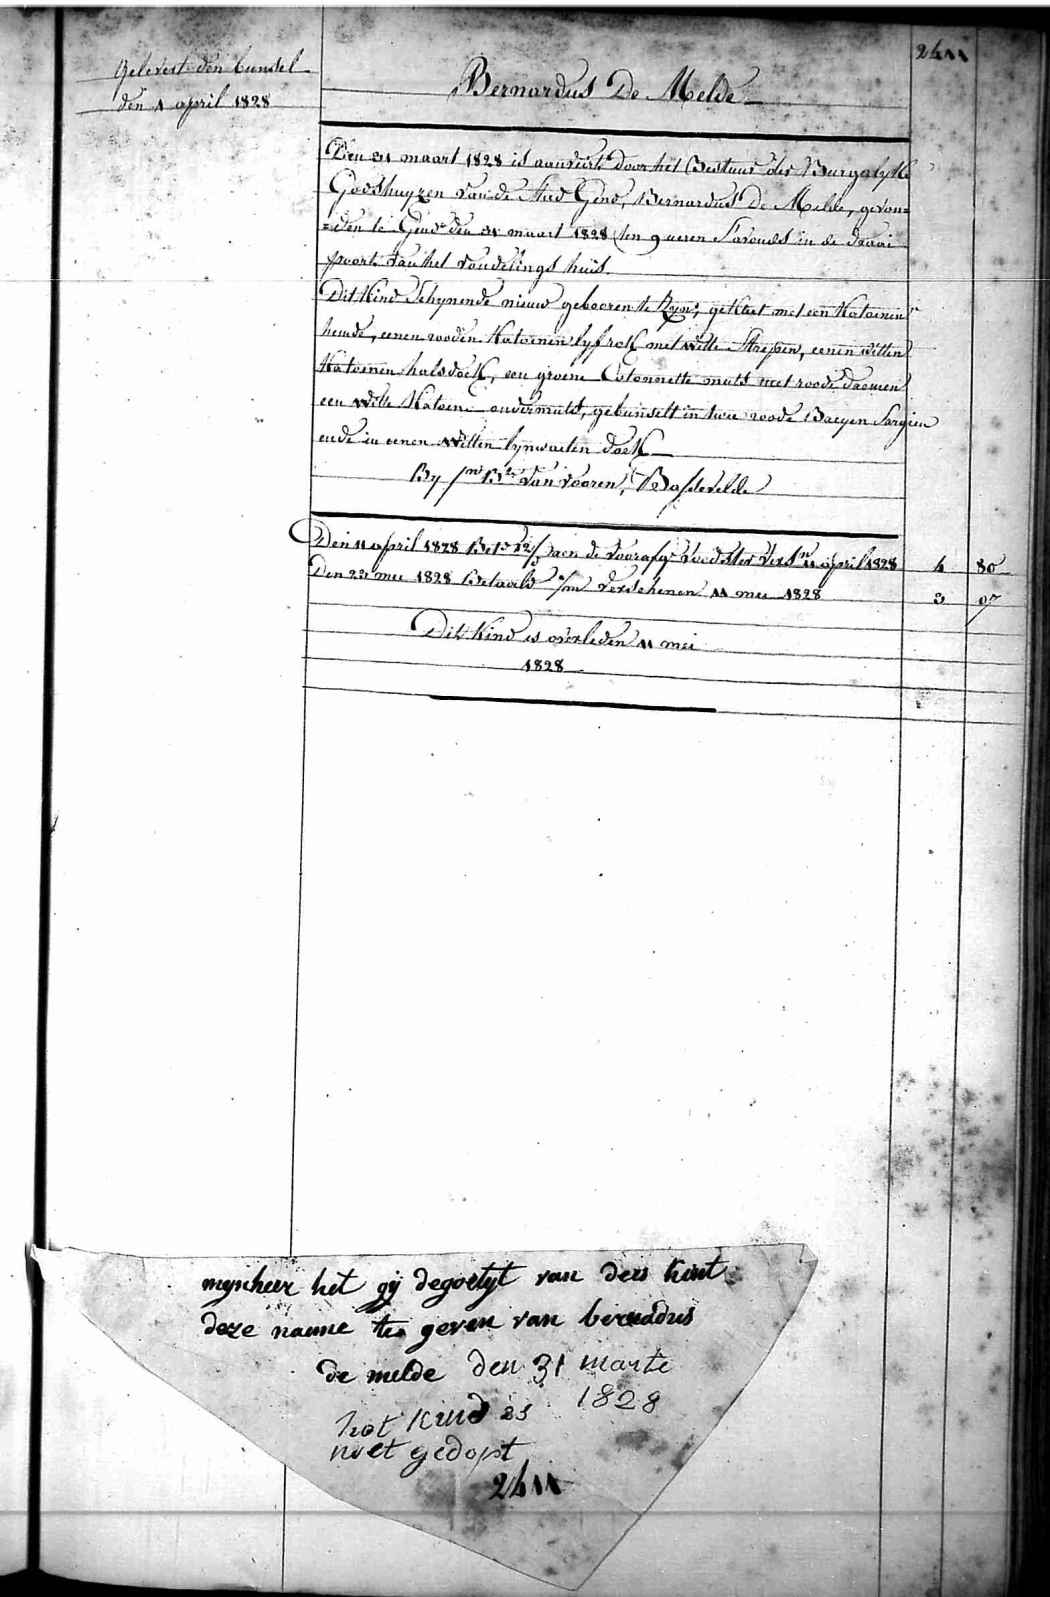 2411
Gelevert den bunsel
den 1 april 1828
Bernardus De Melde
Den 31 maart 1828 is aanveirt door het Bestuur der Burgelyke
Godshuyzen van de Stad Gend, Bernardus De Melde, gevon=
=den te Gend den 31 maart 1828 ten 9 ueren s'avonds in de draai
poort van het vondelings huis.
Dit Kind schynende nieuw gebooren te zyn; gekleet met een Katoenen
hemde, eenen rooden Katoenen lyfrok met witte strepen, eenen witten
Katoenen halsdoek, een groene Cotonnette muts met roode
een witte Katoene ondermuts, gebunselt in twee roode Baeyen Sargien
ende in eenen witten lynwaeten doek
By Van Vooren, Bassevelde
Den 11 april 1828 aen de voedster 11 april 1828 4 80
Den 22 mei 1828 Betaald verschenen 11 mei 1828 3 07
Dit Kind is overleden 11 mei
1828
mynheer het gij degoetyt van ders kint
deze naeme te geven van bernadus
de melde den 31 marte
1828
het kind is
niet gedopt
2411